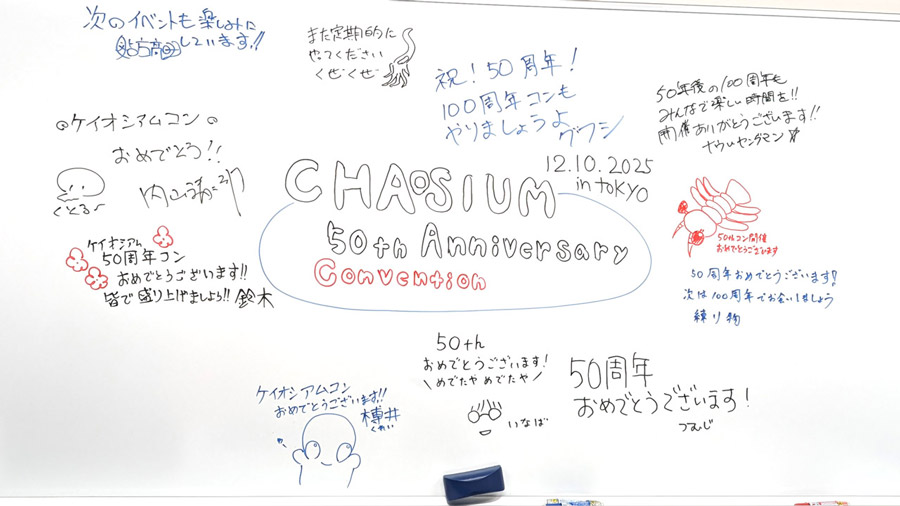 次のイベントも楽しみに
しています!!
また定期的に
やってください
くぜくぜ
祝!50周年!
100周年コンも
やりましょうよ
グワシ
50年後の100周年も
みんなで楽しい時間を!!
開催ありがとうございます!!
ナウいヤングマン☆
ケイオシアムコン
おめでとう!!
くとぅる〜
CHAOSIUM
12.10.2025
in TOKYO
50th Anniversary
Convention
ケイオシアム
50周年コン
おめでとうございます!!
皆で盛り上げましょう!! 鈴木
50thコン開催
おめでとうございます
50周年おめでとうございます!
次は100周年でお会いしましょう
練り物
50th
おめでとうございます!
\めでたや めでたや/
いなば
50周年
おめでとうございます!
つむじ
ケイオシアムコン
おめでとうございます!!